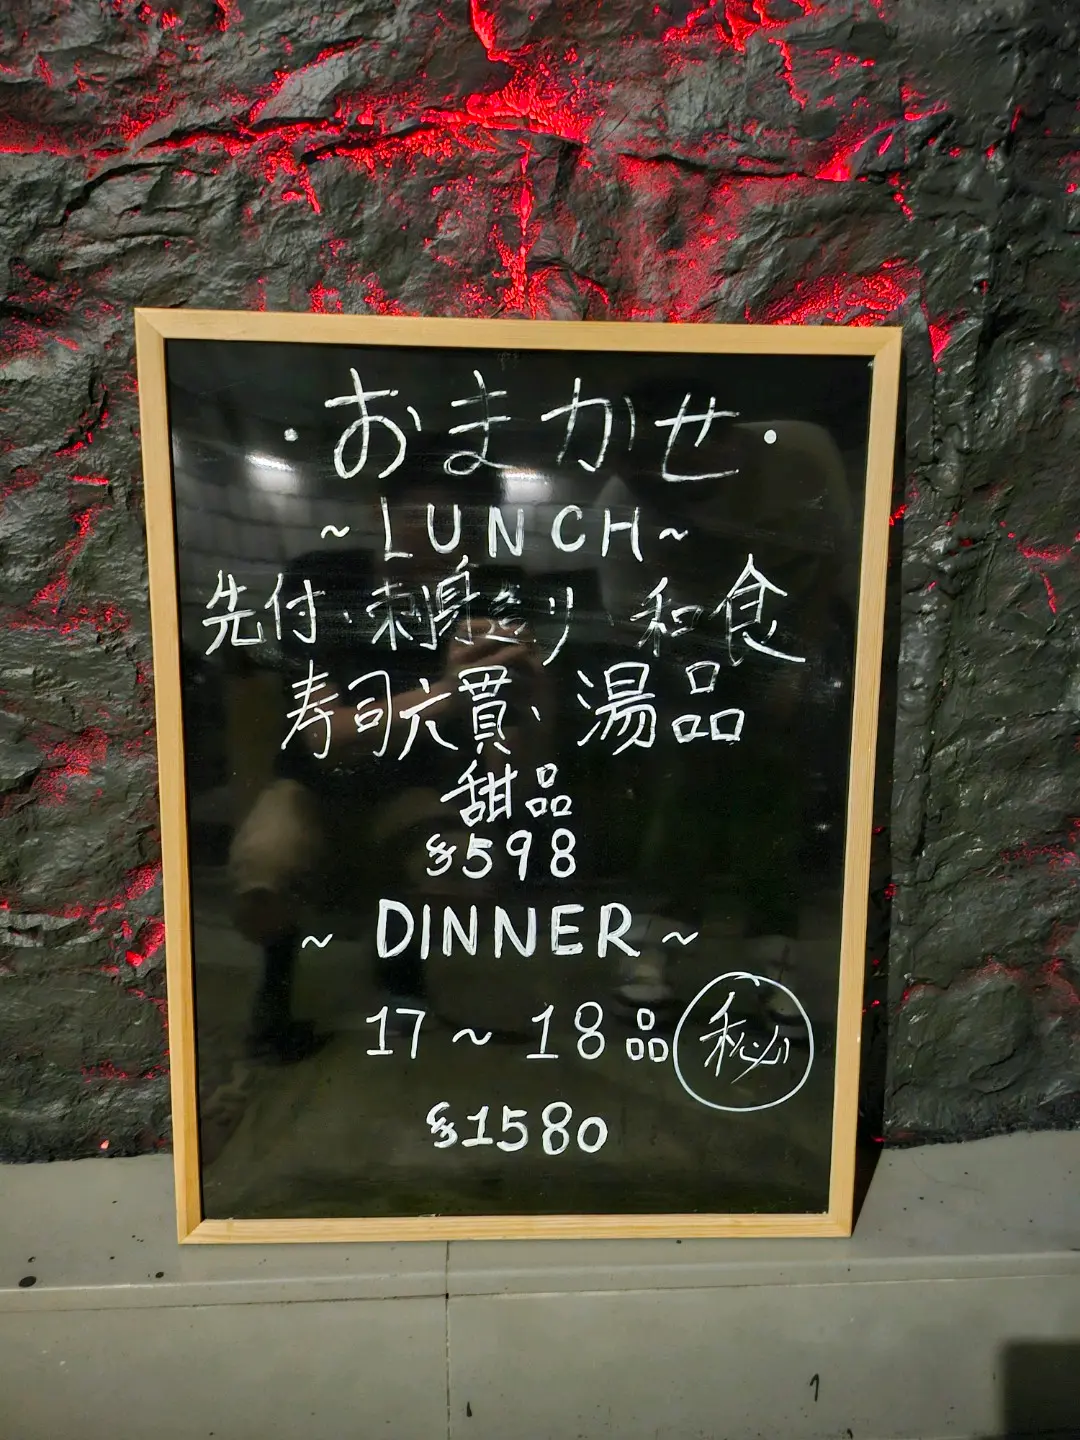 ·おまかせ·
~LUNCH~
先付、刺身造り、和食
寿司六貫、湯品
甜品
$598
~DINNER~
17~18品 秘
$1580